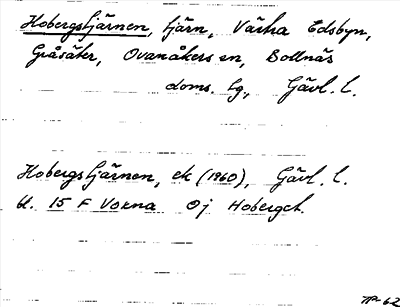 Hobergstjärnen, tjärn, Västra Edsbyn,
Gråsäter, Ovanåkers sn, Bollnäs
doms. lg, Gävl. l.
Hobergstjärnen, ek (1960), Gävl. l.
bl. 15 F Voxna Oj Hoberget.
-62